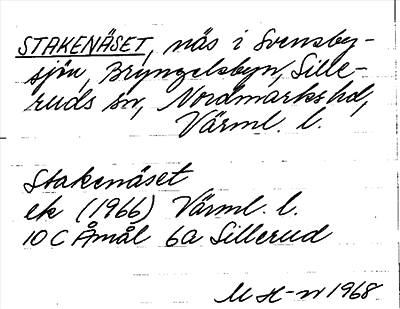 STAKENÄSET, näs i Svensby-
sjön, Bryngelsbyn, Sille-
ruds sn, Nordmarks hd,
Värml. l.
Stakenäset
ek (1966) Värml. l.
10 C Åmål 6a Sillerud
M H-n 1968